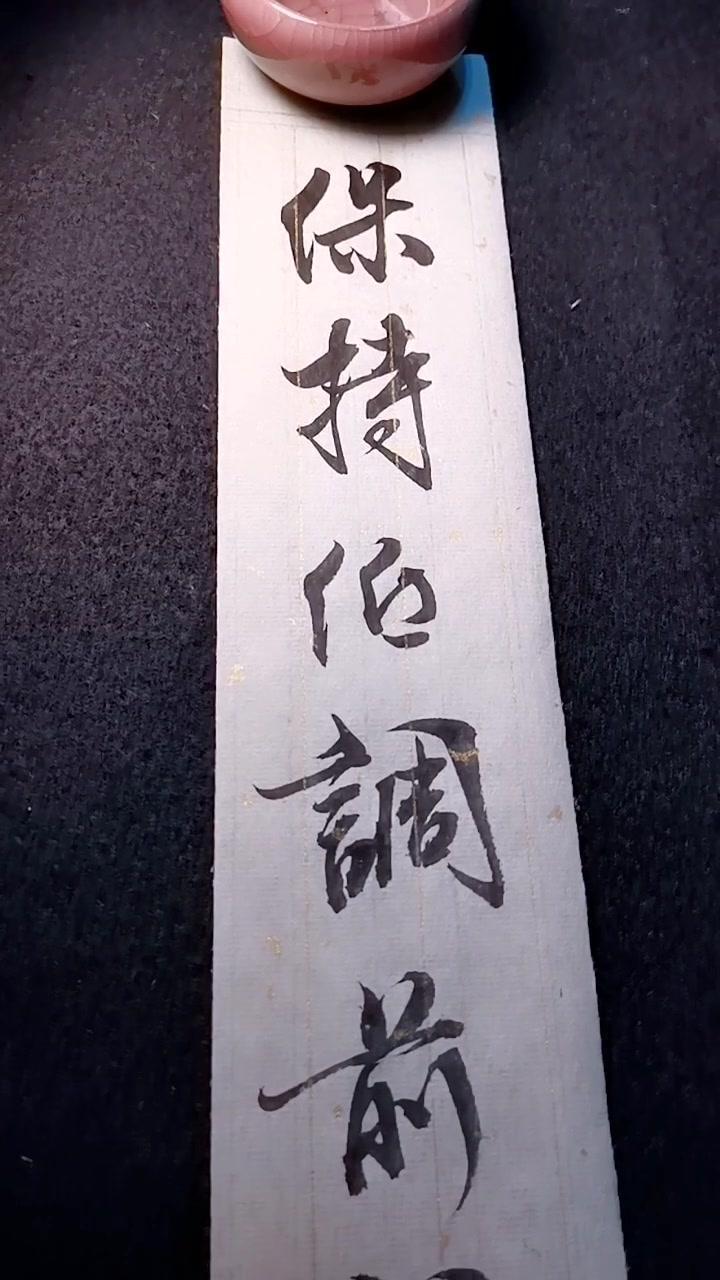 保持伯調前